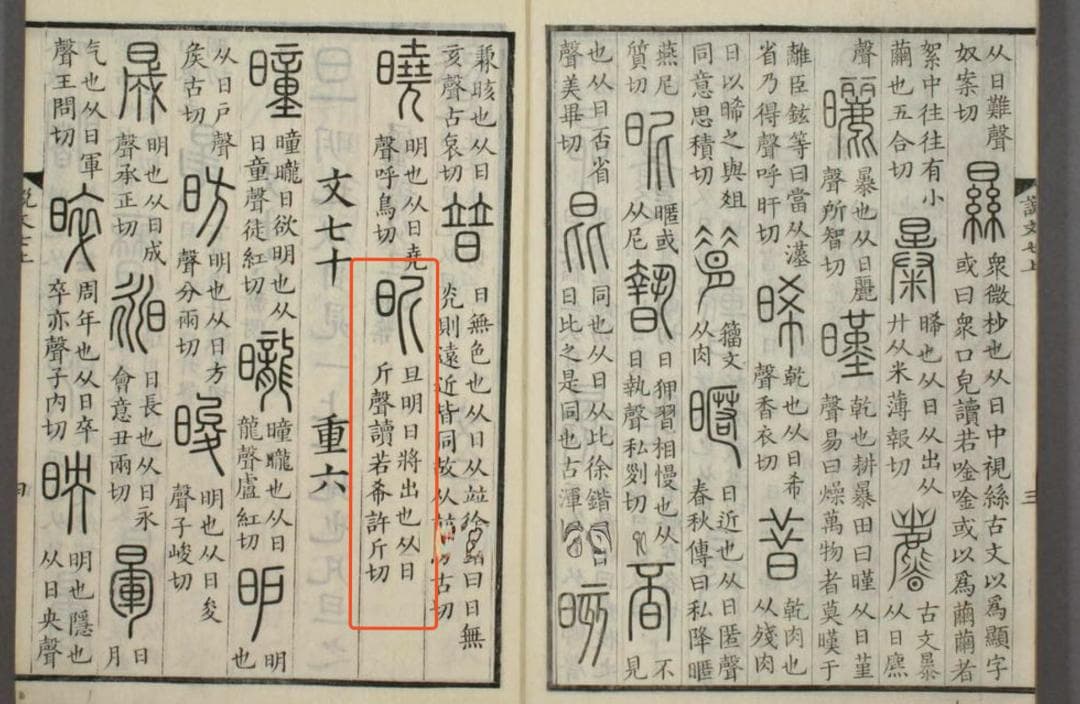 說文七上
三
从日難聲奴案切㬎衆微杪也从日中視絲古文以爲顯字或曰衆口皃讀若唫唫或以爲繭繭者
絮中往往有小繭也五合切㬥晞也从日出从廾从米薄報切古文暴从日麃
聲曬暴也从日麗聲所智切暵乾也耕暴田曰暵从日堇聲易曰燥萬物者莫暵于
離臣鉉等曰當从漢省乃得聲呼旰切晞乾也从日希聲香衣切昔乾肉也从殘肉
日以晞之與俎同意思積切籀文从肉暱日近也从日匿聲春秋傳曰私降暱
燕尼質切昵暱或从尼暬日狎習相慢也从日執聲私列切否不見
也从日否省聲美畢切昆同也从日从比徐鍇曰日比之是同也古渾切晐
兼晐也从日亥聲古哀切普日無色也从日从並徐鍇曰日無光則遠近皆同故从並滂古切
曉明也从日堯聲呼鳥切昕旦明日將出也从日斤聲讀若希許斤切
文七十 重六
曈曈曨日欲明也从日童聲徒紅切曨曈曨也从日龍聲盧紅切昈明也
从日戶聲矦古切昉明也从日方聲分兩切晙明也从日夋聲子峻切
晟明也从日成聲承正切昶日長也从日永會意丑兩切暈日月
气也从日軍聲王問切晬周年也从日卒卒亦聲子內切映明也隱也从日央聲